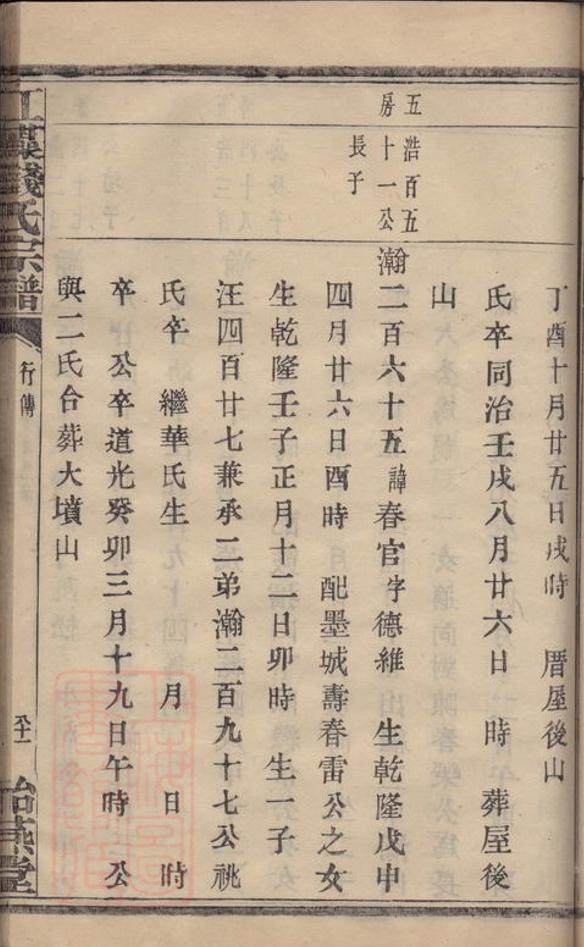 丁酉十月廿五日戌時 厝屋後山
氏卒同治壬戌八月廿六日 時 葬屋後
山
五房
浩百五十一公長子
瀚二百六十五諱春官字德維 生乾隆戊申
四月廿六日酉時 配墨城壽春雷公之女
生乾隆壬子正月十二日卯時 生一子
汪四百廿七兼承二弟瀚二百九十七公祧
氏卒 繼華氏生 年 月 日 時
卒 公卒道光癸卯三月十九日午時 公
與二氏合葬大墳山
錢氏宗譜
行傳
怡燕堂